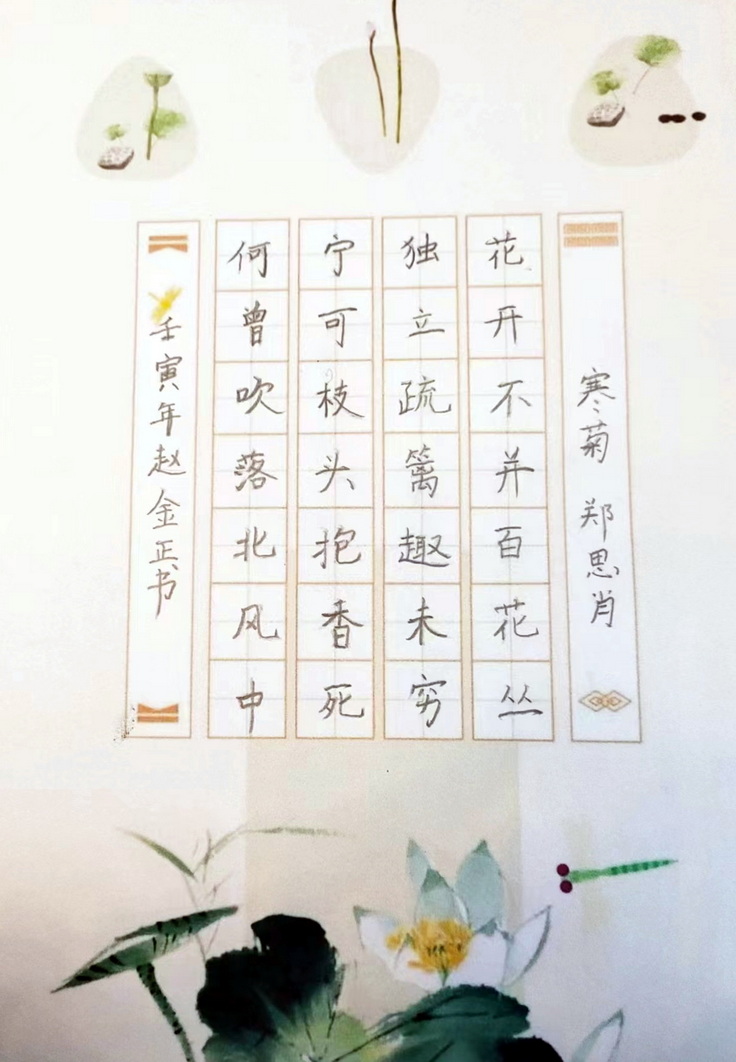 寒菊 郑思肖
花开不并百花丛
独立疏篱趣未穷
宁可枝头抱香死
何曾吹落北风中
壬寅年赵金正书